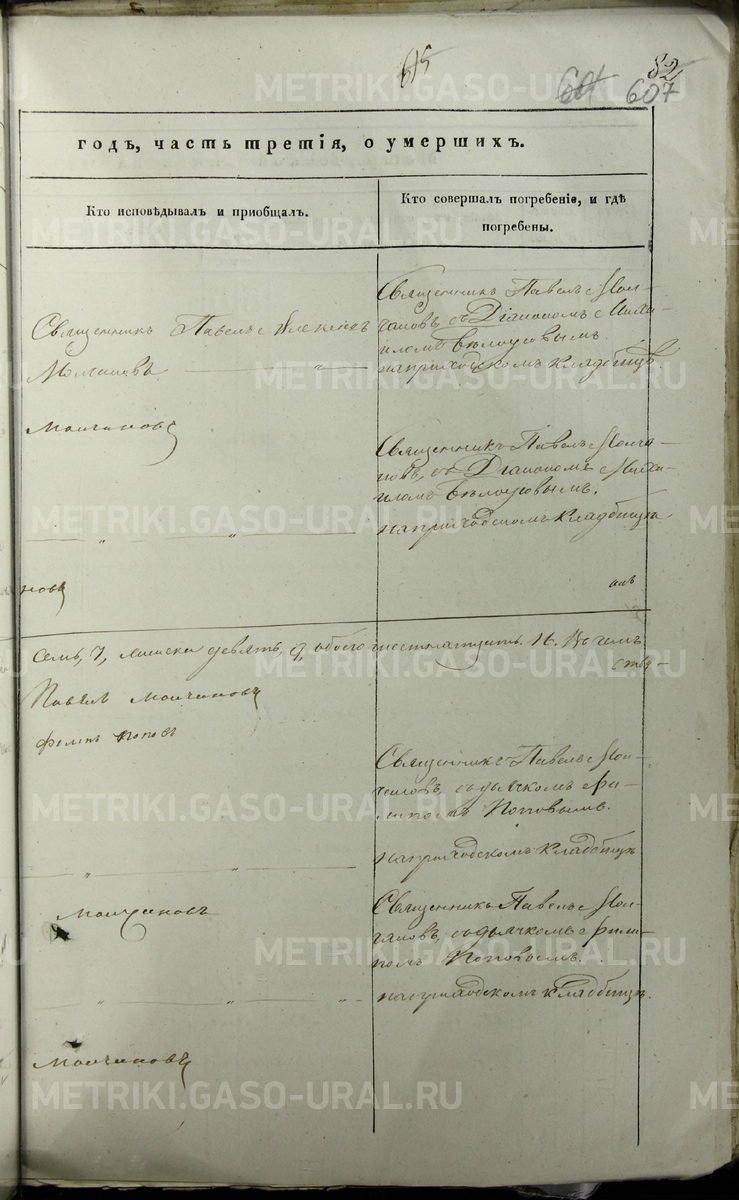 615
82
601 607
годъ, часть третія, о умершихъ.
Кто исповѣдывалъ и приобщалъ.
Кто совершалъ погребеніе, и гдѣ
погребены.
Священникъ Павелъ Мол-
чановъ, съ Діакономъ Миха-
иломъ Бѣлоусовымъ.
на приходскомъ кладбищѣ.
Священникъ Павелъ Алексѣевъ
Молчановъ
Молчановъ
Священникъ Павелъ Молча-
новъ, съ Діакономъ Миха-
иломъ Бѣлоусовымъ.
на приходскомъ кладбищѣ
новъ
семь, 7, женска девять, 9, обоего шестнатцать. 16. Въ чемъ
Павелъ Молчановъ
Филипъ Поповъ
Священникъ Павелъ Мол-
чановъ, съ дьячкомъ Фи-
липомъ Поповымъ.
на приходскомъ кладбищѣ
Молчановъ
Священникъ Павелъ Мол-
чановъ, съ дьячкомъ Фили-
помъ Поповымъ.
на приходскомъ кладбищѣ.
Молчановъ
METRIKI.GASO-URAL.RU